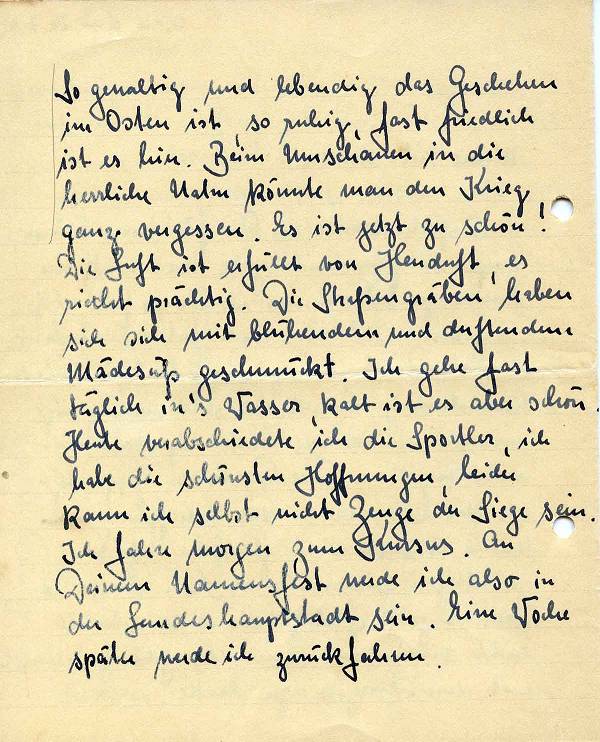 So gewaltig und lebendig das Geschehen
im Osten ist, so ruhig, fast friedlich
ist es hier. Beim Umschauen in die
herrliche Natur könnte man den Krieg
ganz vergessen. Es ist jetzt zu schön!
Die Luft ist erfüllt von Heuduft, es
riecht prächtig. Die Straßengräben haben
sich sich mit blühendem und duftendem
Mädesüß geschmückt. Ich gehe fast
täglich in's Wasser, kalt ist es aber schön.
Heute verabschiedete ich die Sportler, ich
habe die schönsten Hoffnungen, leider
kann ich selbst nicht Zeuge der Siege sein.
Ich fahre morgen zum Kursus. An
Deinem Namensfest werde ich also in
der Landeshauptstadt sein. Eine Woche
später werde ich zurückfahren.